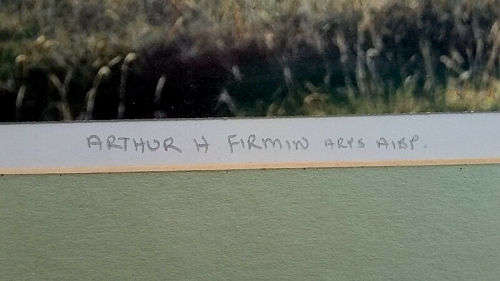 ARTHUR H FIRMIN ARPS AIBP.